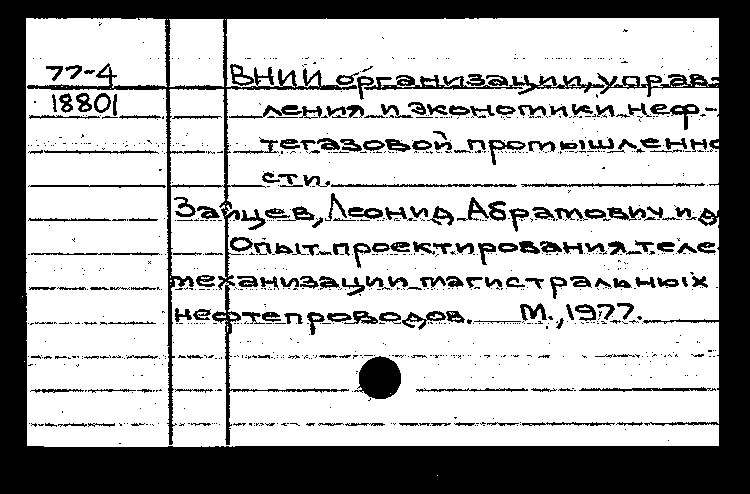 77-4 ВНИИ организации, управ-
18801 ления и экономики неф-
тегазовой промышленно
сти.
Зайцев, Леонид Абрамович и д
Опыт проектирования теле-
механизации магистральных
нефтепроводов. М., 1977.